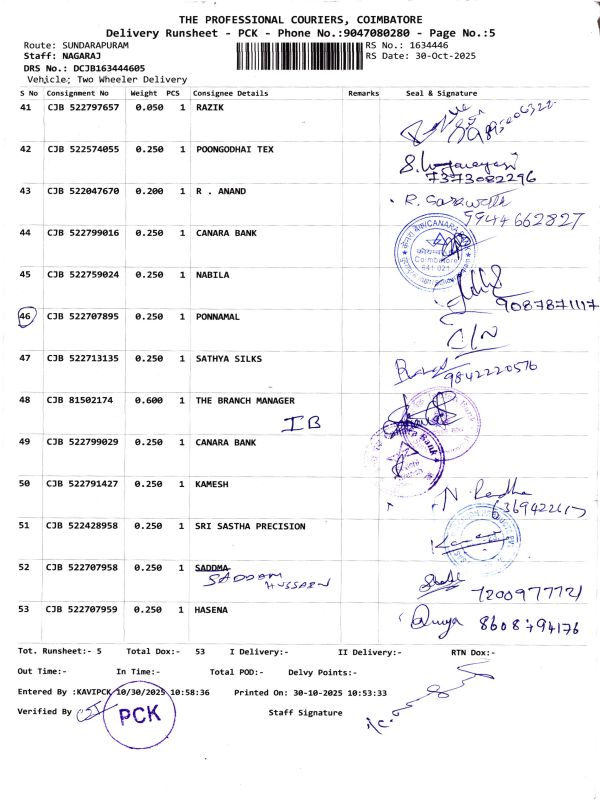 THE PROFESSIONAL COURIERS, COIMBATORE
Delivery Runsheet - PCK - Phone No.:9047080280 - Page No.:5
Route: SUNDARAPURAM RS No.: 1634446
Staff: NAGARAJ RS Date: 30-Oct-2025
DRS No.: DCJB163444605
Vehicle: Two Wheeler Delivery
S No Consignment No Weight PCS Consignee Details Remarks Seal & Signature
41 CJB 522797657 0.050 1 RAZIK
42 CJB 522574055 0.250 1 POONGODHAI TEX
7373082296
43 CJB 522047670 0.200 1 R . ANAND R.
9944662827
44 CJB 522799016 0.250 1 CANARA BANK
CANARA
Coimbatore
641 021
45 CJB 522759024 0.250 1 NABILA
9087871117
46 CJB 522707895 0.250 1 PONNAMAL
47 CJB 522713135 0.250 1 SATHYA SILKS
9842220576
48 CJB 81502174 0.600 1 THE BRANCH MANAGER
IB
49 CJB 522799029 0.250 1 CANARA BANK
Bank
50 CJB 522791427 0.250 1 KAMESH
N Radha
51 CJB 522428958 0.250 1 SRI SASTHA PRECISION
52 CJB 522707958 0.250 1 SADDMA
SADDAM HUSSAEN
7200977721
53 CJB 522707959 0.250 1 HASENA
8608794176
Tot. Runsheet:- 5 Total Dox:- 53 I Delivery:- II Delivery:- RTN Dox:-
Out Time:- In Time:- Total POD:- Delvy Points:-
Entered By :KAVIPCK 10/30/2025 10:58:36 Printed On: 30-10-2025 10:53:33
Verified By PCK Staff Signature